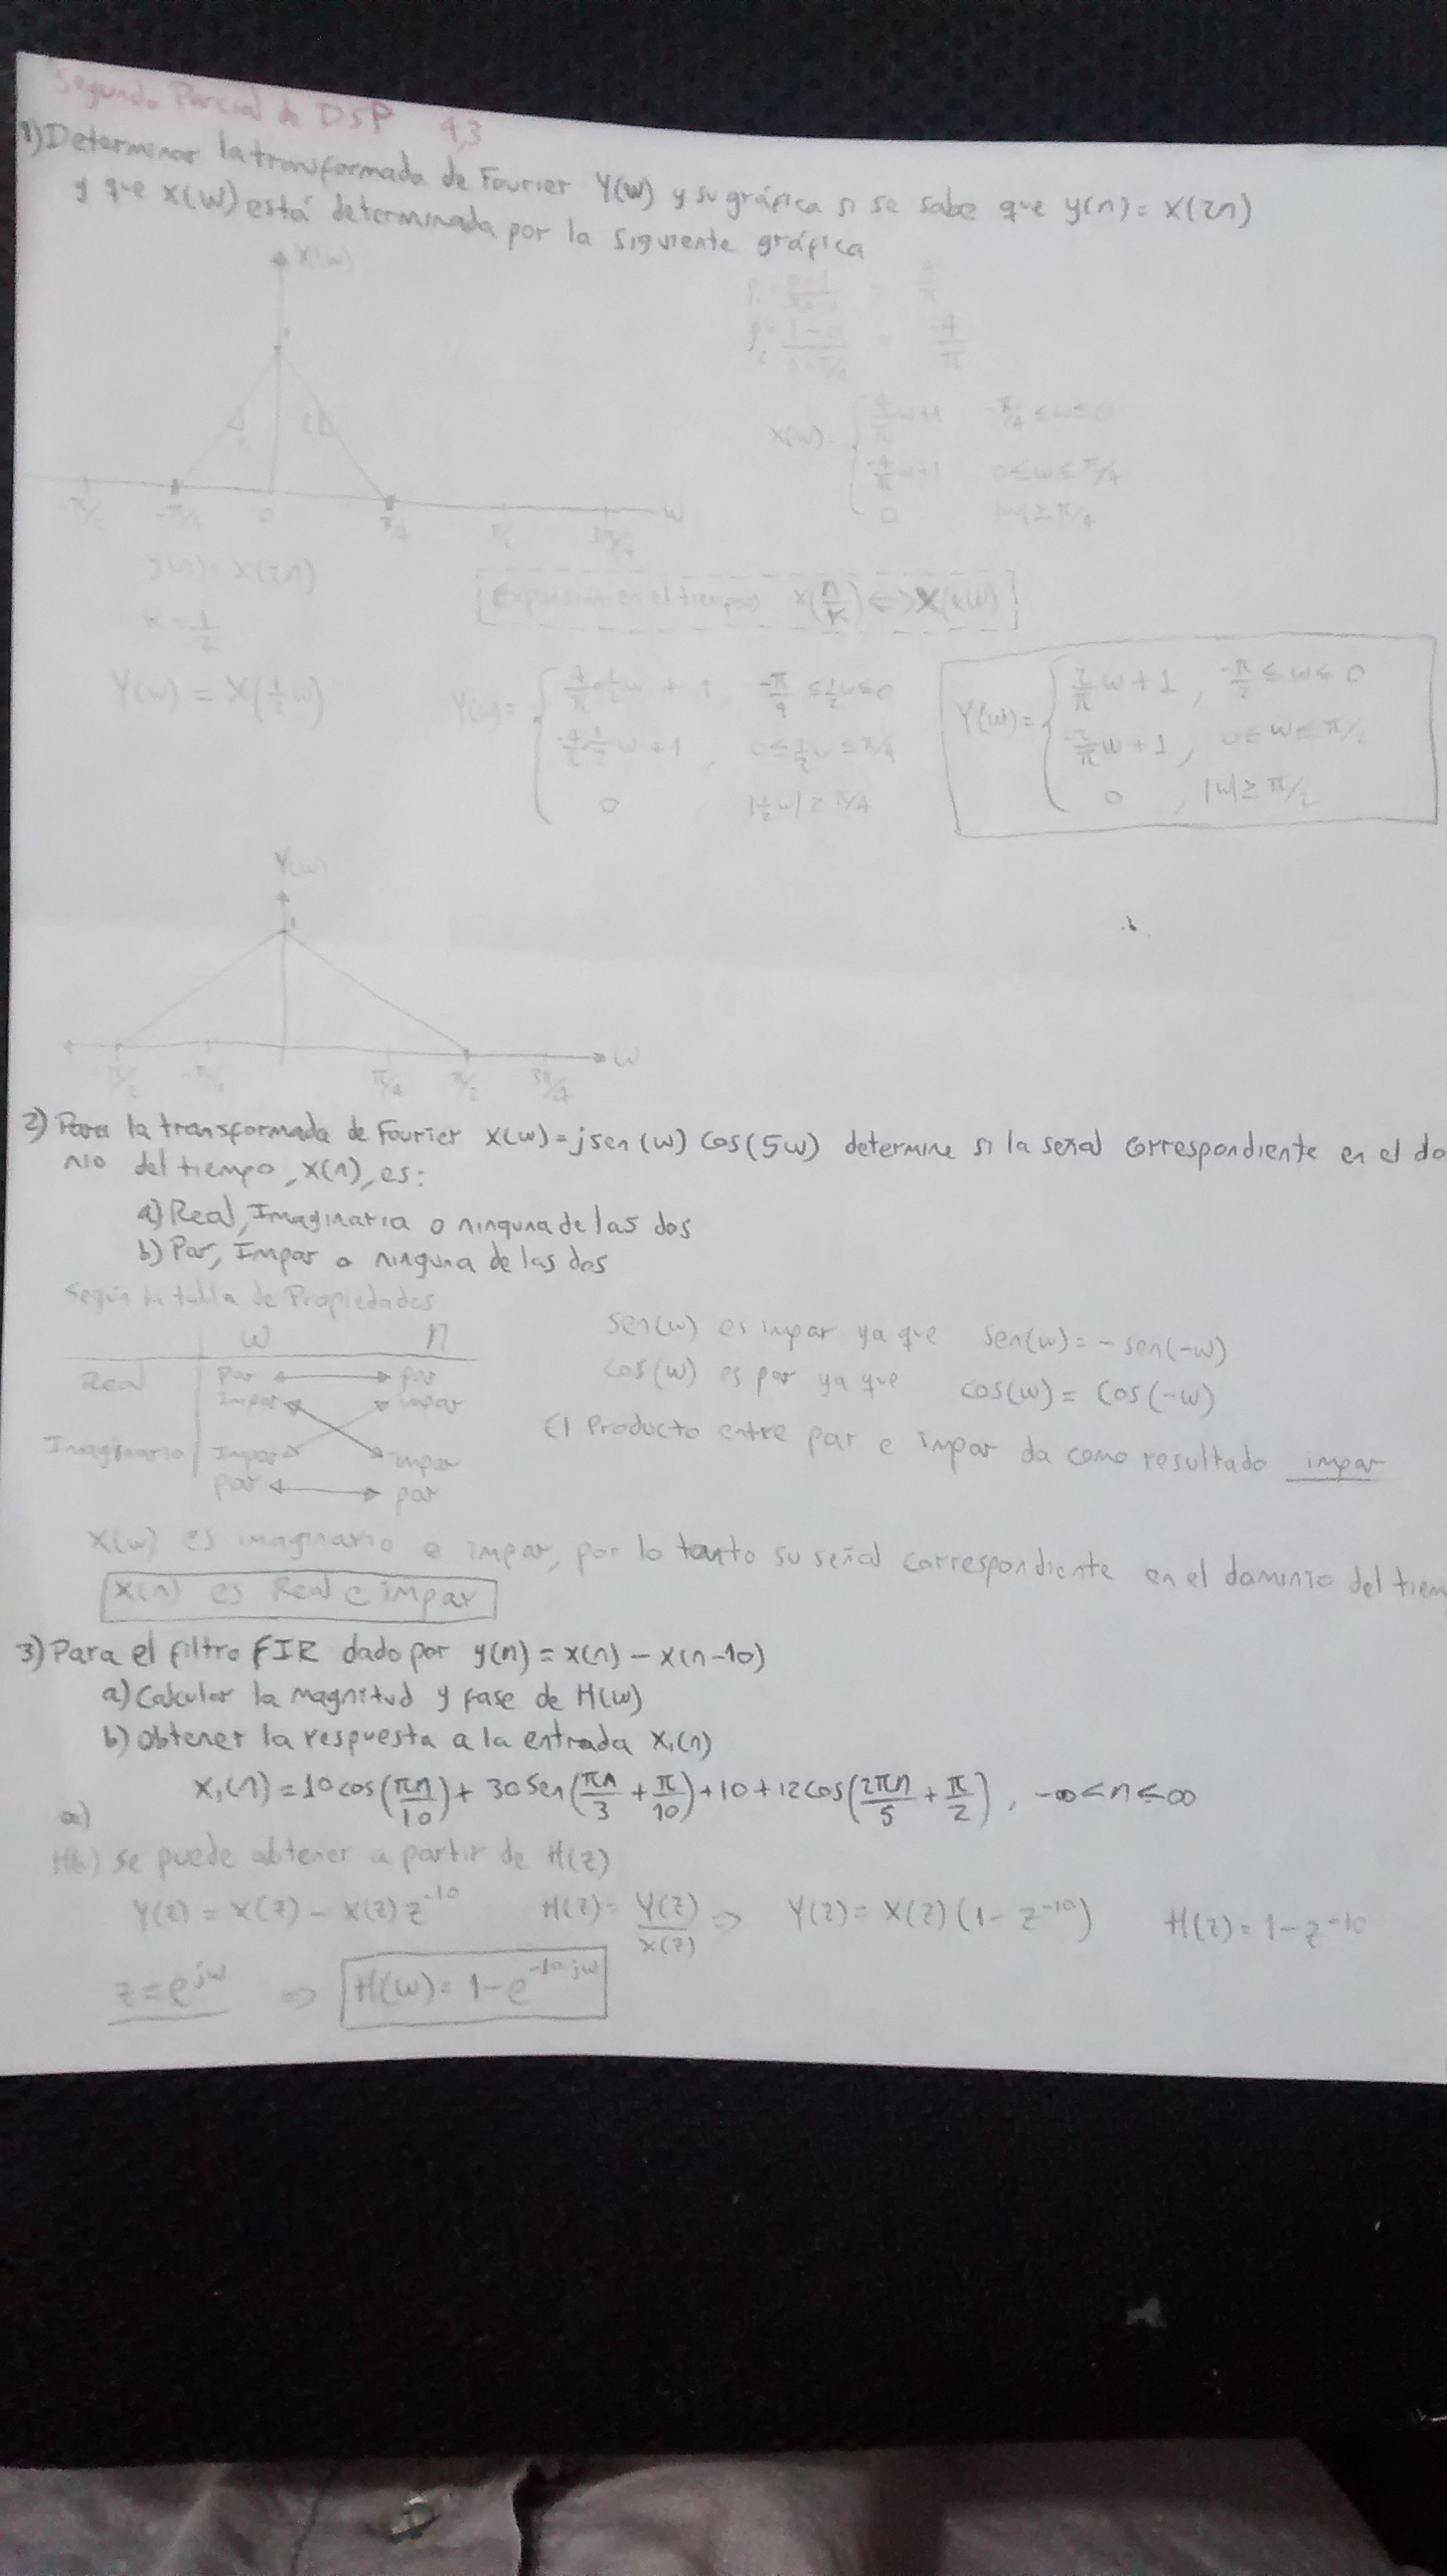 Segundo Parcial de DSP 9,3
1) Determinar la transformada de Fourier Y(w) y su gráfica si se sabe que y(n) = x(2n)
y que X(w) está determinada por la siguiente gráfica
X(w)
1
-π/2 -π/4 0 π/4 π/2 3π/4 w
= 4/π
= -4/π
X(w) = { 4/π w+1 -π/4 ≤ w ≤ 0
-4/π w+1 0 ≤ w ≤ π/4
0 |w| ≥ π/4
y(n) = x(2n)
[Expansión en el tiempo x(n/k) <=> X(kw)]
k = 1/2
Y(w) = X(1/2 w)
Y(w) = { 4/π 1/2 w + 1, -π/4 ≤ 1/2 w ≤ 0
-4/π 1/2 w + 1, 0 ≤ 1/2 w ≤ π/4
0, |1/2 w| ≥ π/4
Y(w) = { 2/π w + 1, -π/2 ≤ w ≤ 0
-2/π w + 1, 0 ≤ w ≤ π/2
0, |w| ≥ π/2
Y(w)
1
-π/2 -π/4 π/4 π/2 3π/4 w
2) Para la transformada de Fourier X(w) = jsen(w) cos(5w) determine si la señal correspondiente en el do
nio del tiempo, x(n), es:
a) Real, Imaginaria o ninguna de las dos
b) Par, Impar o ninguna de las dos
Según la tabla de Propiedades
w n
Real Par par
Impar impar
Imaginario Impar impar
par par
Sen(w) es impar ya que Sen(w) = - sen(-w)
cos(w) es par ya que cos(w) = cos(-w)
El Producto entre par e impar da como resultado impar
X(w) es imaginario e impar, por lo tanto su señal correspondiente en el dominio del tiem
x(n) es Real e impar
3) Para el filtro FIR dado por y(n) = x(n) - x(n-10)
a) Calcular la magnitud y fase de H(w)
b) Obtener la respuesta a la entrada x₁(n)
x₁(n) = 10 cos(πn/10) + 30 Sen(πn/3 + π/10) + 10 + 12 cos(2πn/5 + π/2), -∞ < n ≤ ∞
a)
H(w) se puede obtener a partir de H(z)
Y(z) = X(z) - X(z) z⁻¹⁰ H(z) = Y(z)/X(z) => Y(z) = X(z) (1 - z⁻¹⁰) H(z) = 1 - z⁻¹⁰
z = e^jw => H(w) = 1 - e^-10jw